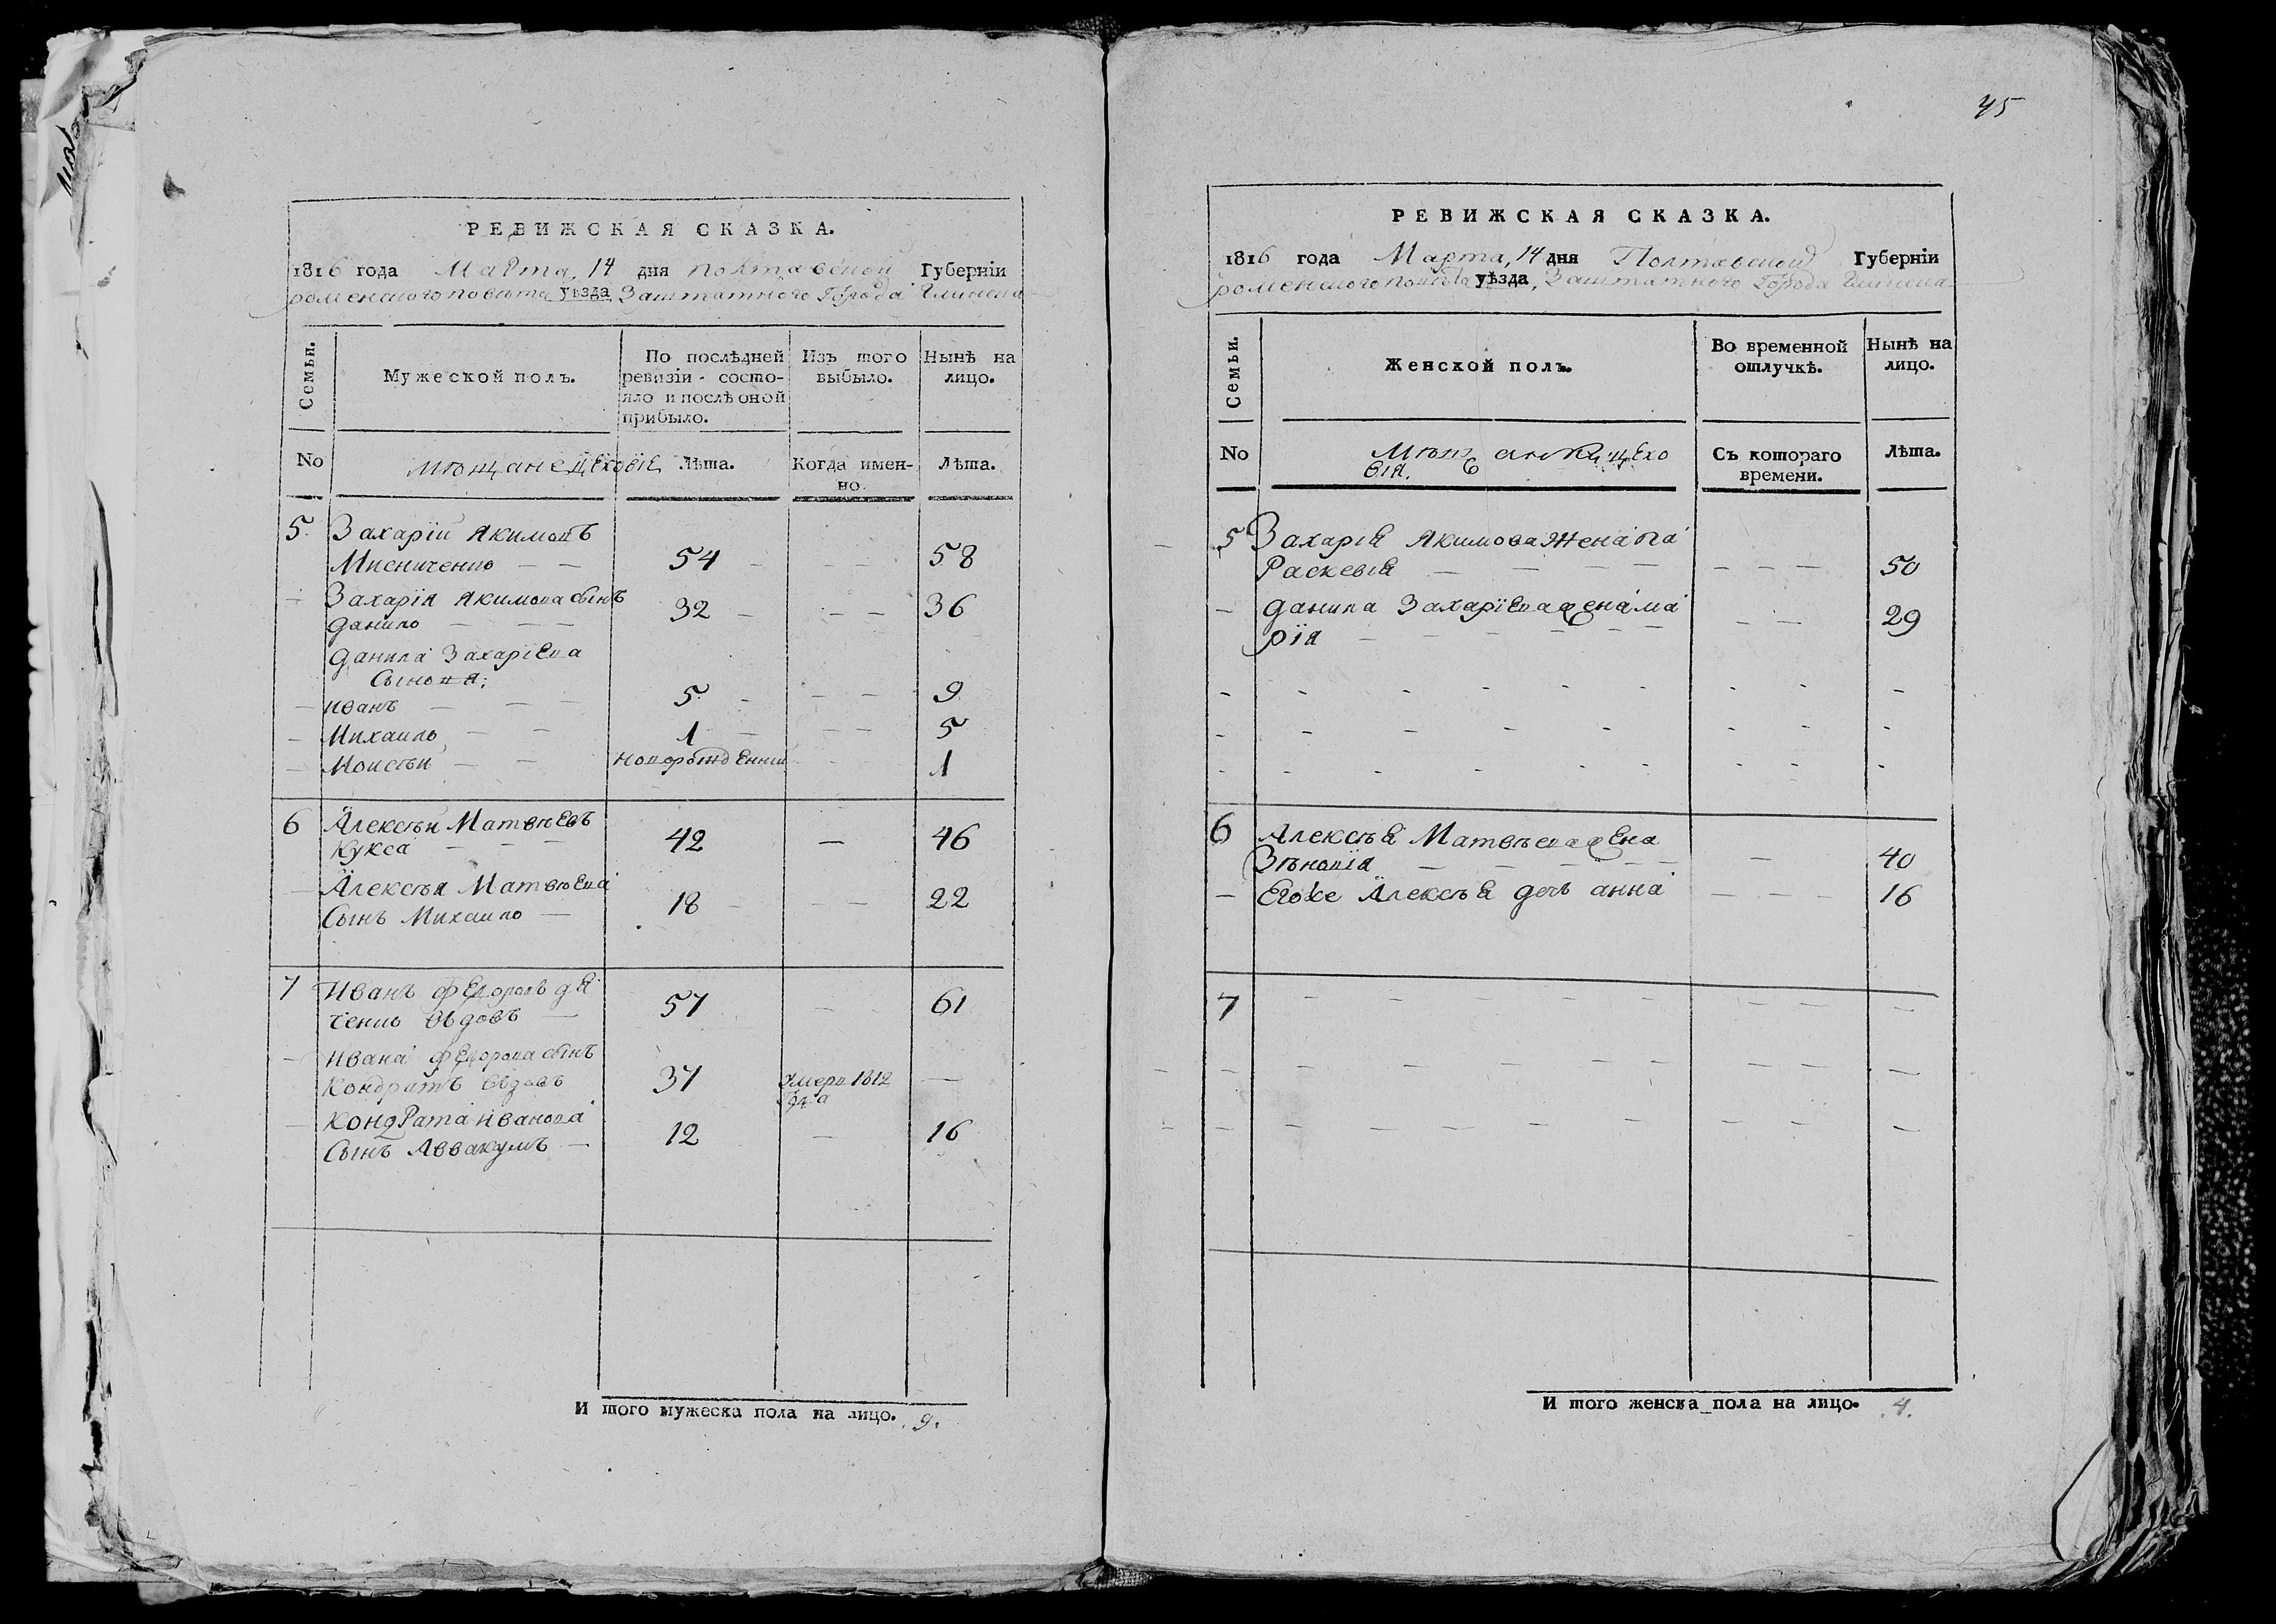 45
РЕВИЖСКАЯ СКАЗКА.
1816 года Марта, 14 дня Полтавской Губерніи
роменского повѣта уѣзда Заштатного Города Глинска
Семьи.
Мужеской полъ.
По послѣдней ревизіи состояло и послѣ оной прибыло.
Изъ того выбыло.
Нынѣ на лицо.
No
Мѣщане цеховіе
Лѣта.
Когда именно.
Лѣта.
5 Захарій Акимовъ
Мисниченко — — 54 — — — 58
— Захарія Акимова сынъ
Данило — — — 32 — — — 36
Данила Захаріева
Сыновя;
— Иванъ — — — 5 — — — 9
— Михайло — — 1 — — — 5
— Моисѣй — — новорожденній 1
6 Алексѣй Матвѣевъ
Кукса — — — 42 — 46
— Алексѣя Матвѣева
Сынъ Михайло — 18 — — — 22
7 Иванъ Федоровъ
вдовъ — 57 — 61
— Ивана Федорова сынъ
Кондратъ вдовъ 37 умеръ 1812 —
года
— Кондрата Иванова
Сынъ Аввакумъ — 12 — 16
И того мужеска пола на лицо. 9.
РЕВИЖСКАЯ СКАЗКА.
1816 года Марта, 14 дня Полтавской Губерніи
роменского повѣта уѣзда, Заштатного Города Глинска
Семьи.
Женской полъ.
Во временной отлучкѣ.
Нынѣ на лицо.
No
Мѣщанки цехо
вія.
Съ котораго времени.
Лѣта.
5 Захарія Акимова жена Па
раскевія — — — — — — — 50
— Данила Захаріева жена Ма
рія — — — — — — — — 29
6 Алексѣя Матвѣева жена
Зѣновія — — — — — — 40
— Его же Алексѣя дочь Анна — — — 16
7
И того женска пола на лицо. 4.